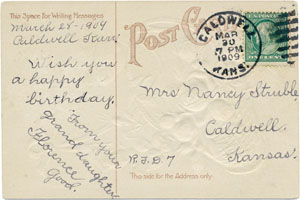 This Space for Writing Messages
March 28-1909
Caldwell Kans.
Wish you
a happy
birthday.
From your
grand daughter
Florence
Good.
POST CARD
CALDWELL
MAR
30
7 PM
1909
KANS.
Mrs Nancy Struble
Caldwell.
Kansas.
R.F.D 7
This side for the Address only